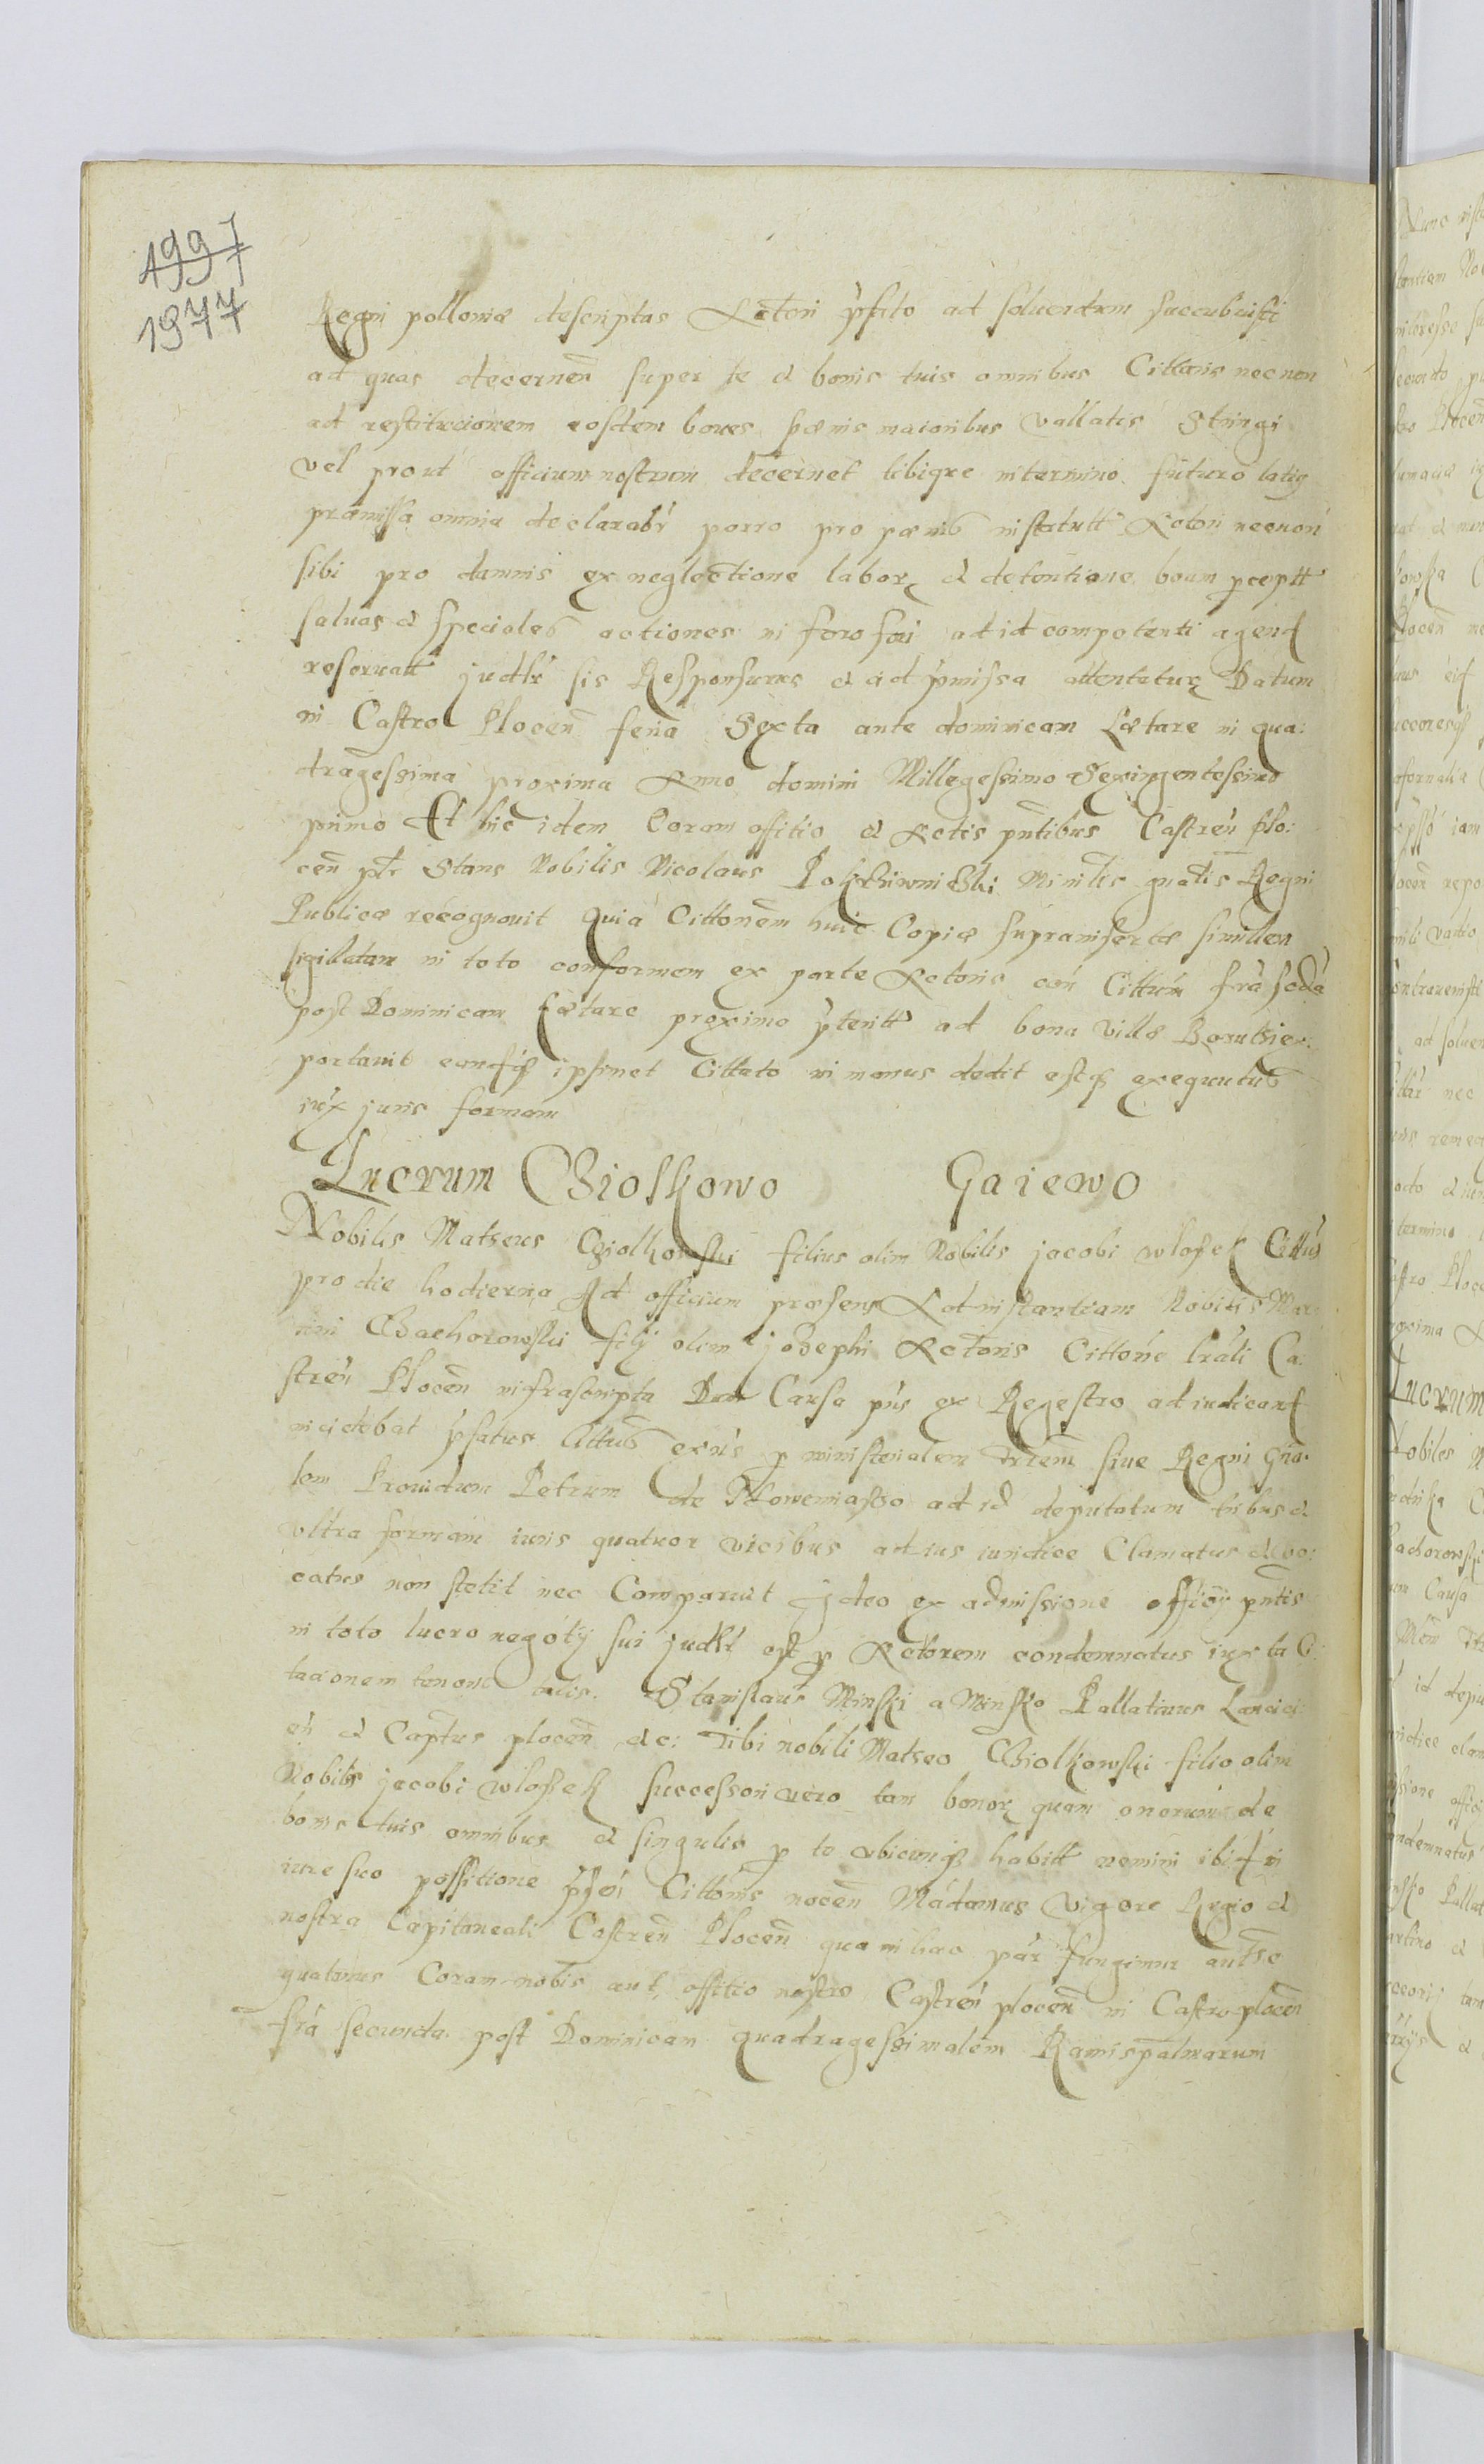 1997
1977
Regni polloniæ descriptas Actori pͬfato ad soluendum succubuisti
ad quas decernen̄ super te et bonis tuis omnibus Cittatis nec non
ad restitucionem eosdem boues pœnis maioribus Vallatis Stringi
vel prout officium nostrum decernet tibique in termino futuro latiꝫ
præmissa omnia declarabr̄ porro pro pœnis in statutt Actori necnon
sibi pro damnis ex neglectione laborꝝ et detentione boum pceptt
saluas et speciales actiones in foro fori ad id competenti agend
reseruatt judltr sis Responsurus et ad pͬmissa attentaturꝫ Datum
in Castro Plocen̄ feria Sexta ante dominicam Lætare in qua:
dragessima proxima Anno domini Millegessimo Sexingentessimo
primo Et hic idem Coram offitio et Actis pn̄tibus Castren̄ plo:
cen̄ pͭr Stans Nobilis Nicolaus Minitͬis gnal̄is Regni
Publicæ recognouit quia Cittonem huic Copiæ suprainsertæ similem
sigillatam in toto conformem ex parte Actoris con̄ Cittum fr̄ia scda
post Dominicam Lætare proximo pͬteritt ad bona Villæ
portauit eandqꝫ ipsimet Cittato in manus dedit estqꝫ exequutus
iux juris formam
Lucrum Cziolkowo Gaiewo
Nobilis Matheus Cziolkowski filius olim Nobilis jacobi wlosek Cittus
pro die hodierna Ad officium præsens Ad instantiam Nobilis Mar
tini Bachorowski filij olim josephi Actoris Cittone lrāli Ca:
stren̄ Plocen̄ infrascripta Dum Causa pn̄s ex Regestro ad iudicand
incidebat pͬfatus Cittus exn̄s p ministerialem trͬem siue Regni Gn̄a:
lem Prouidum Petrum de Nowemiasto ad id deputatum tribus et
vltra formam iuris quatuor vicibus ad ius iuridice Clamatus et vo:
catus non stetit nec Comparuit Ideo ex admissione officij pn̄tis
in toto lucro negotij sui judltr est p Actorem condemnatus iuxta Ci
tacionem tenoris talis. Stanislaus Minski a Minsko Pallatinus Lancici:
en̄ et Capt̄us plocen̄ etc: Tibi nobili Matheo Cziolkowski filio olim
Nobilis jacobi wlosek successori vero tam bonorꝝ quam onerum de
bonis tuis omnibus et singulis p te vbicunqꝫ habitt nemini ibid in
iure suo possitione pͬsen̄ Cittonis nocen̄ Mādamus vigore Regio et
nostra Capitaneali Castren̄ Plocen̄ qua in hac par̄ fungimur autͭte
quatinus Coram nobis aut offitio nostro Castren̄ plocen̄ in Castro plocen̄
fr̄ia secunda post Dominicam quadragessimalem Ramispalmarum